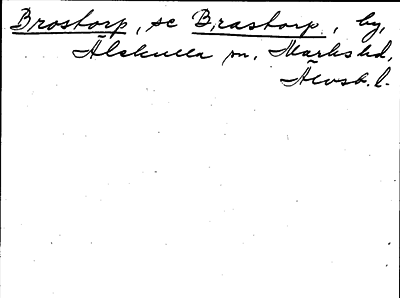 Brostorp, se Brastorp, by,
Älekulla sn, Marks hd,
Älvsb. l.